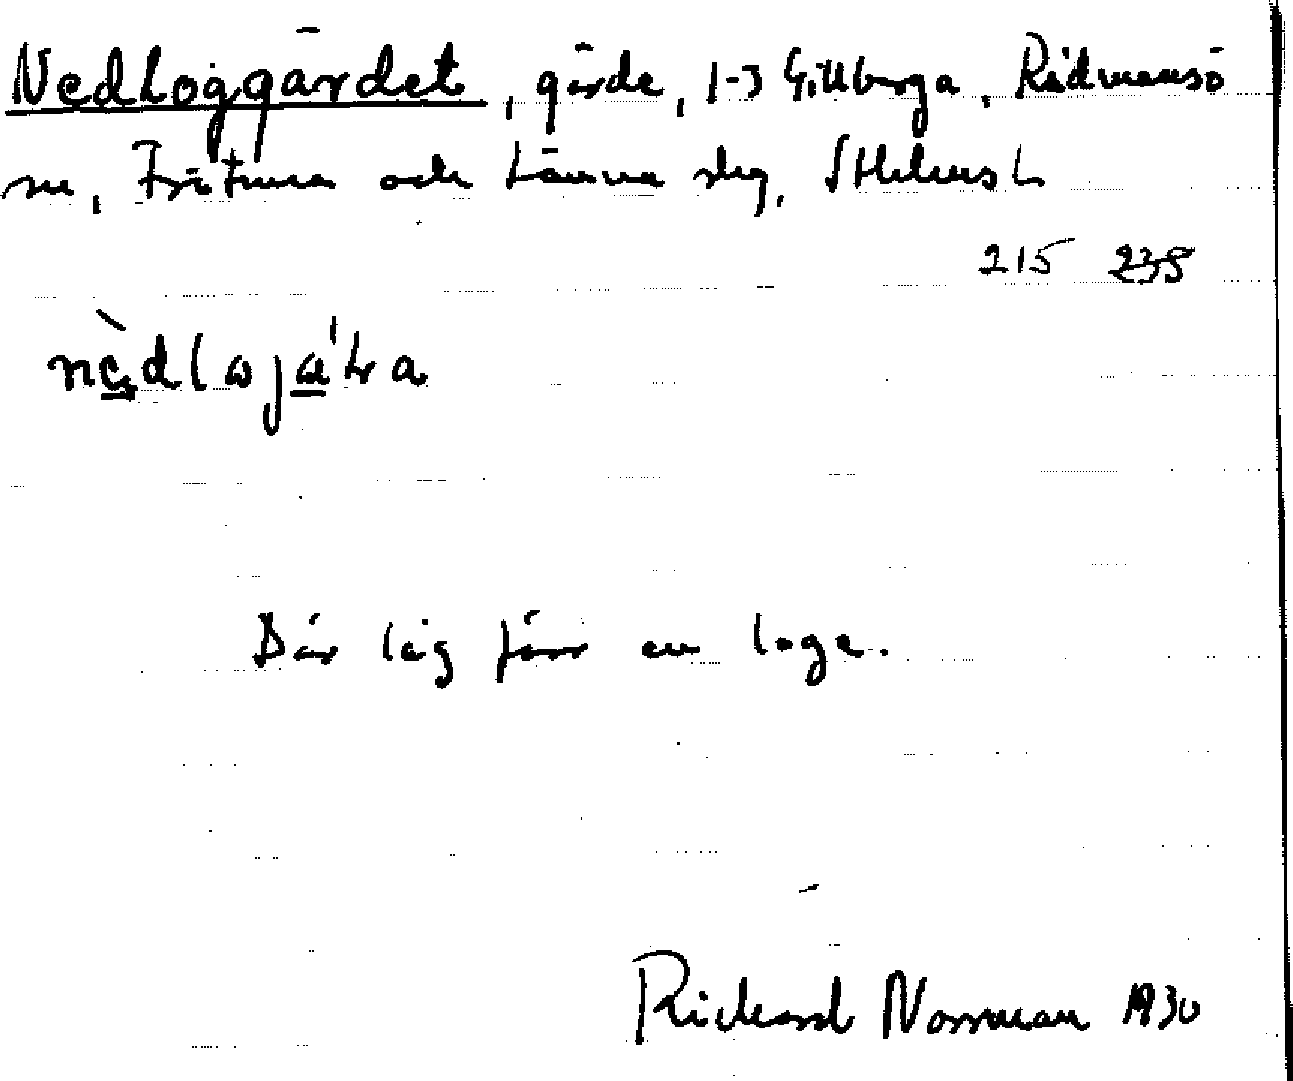 Nedloggärdet, gärde, 1-3 Gillberga, Rådmansö
sn, Frötuna och Länna slg, Sthlms L
215 235
Där låg förr en loge.
Rickard Norrman 1930